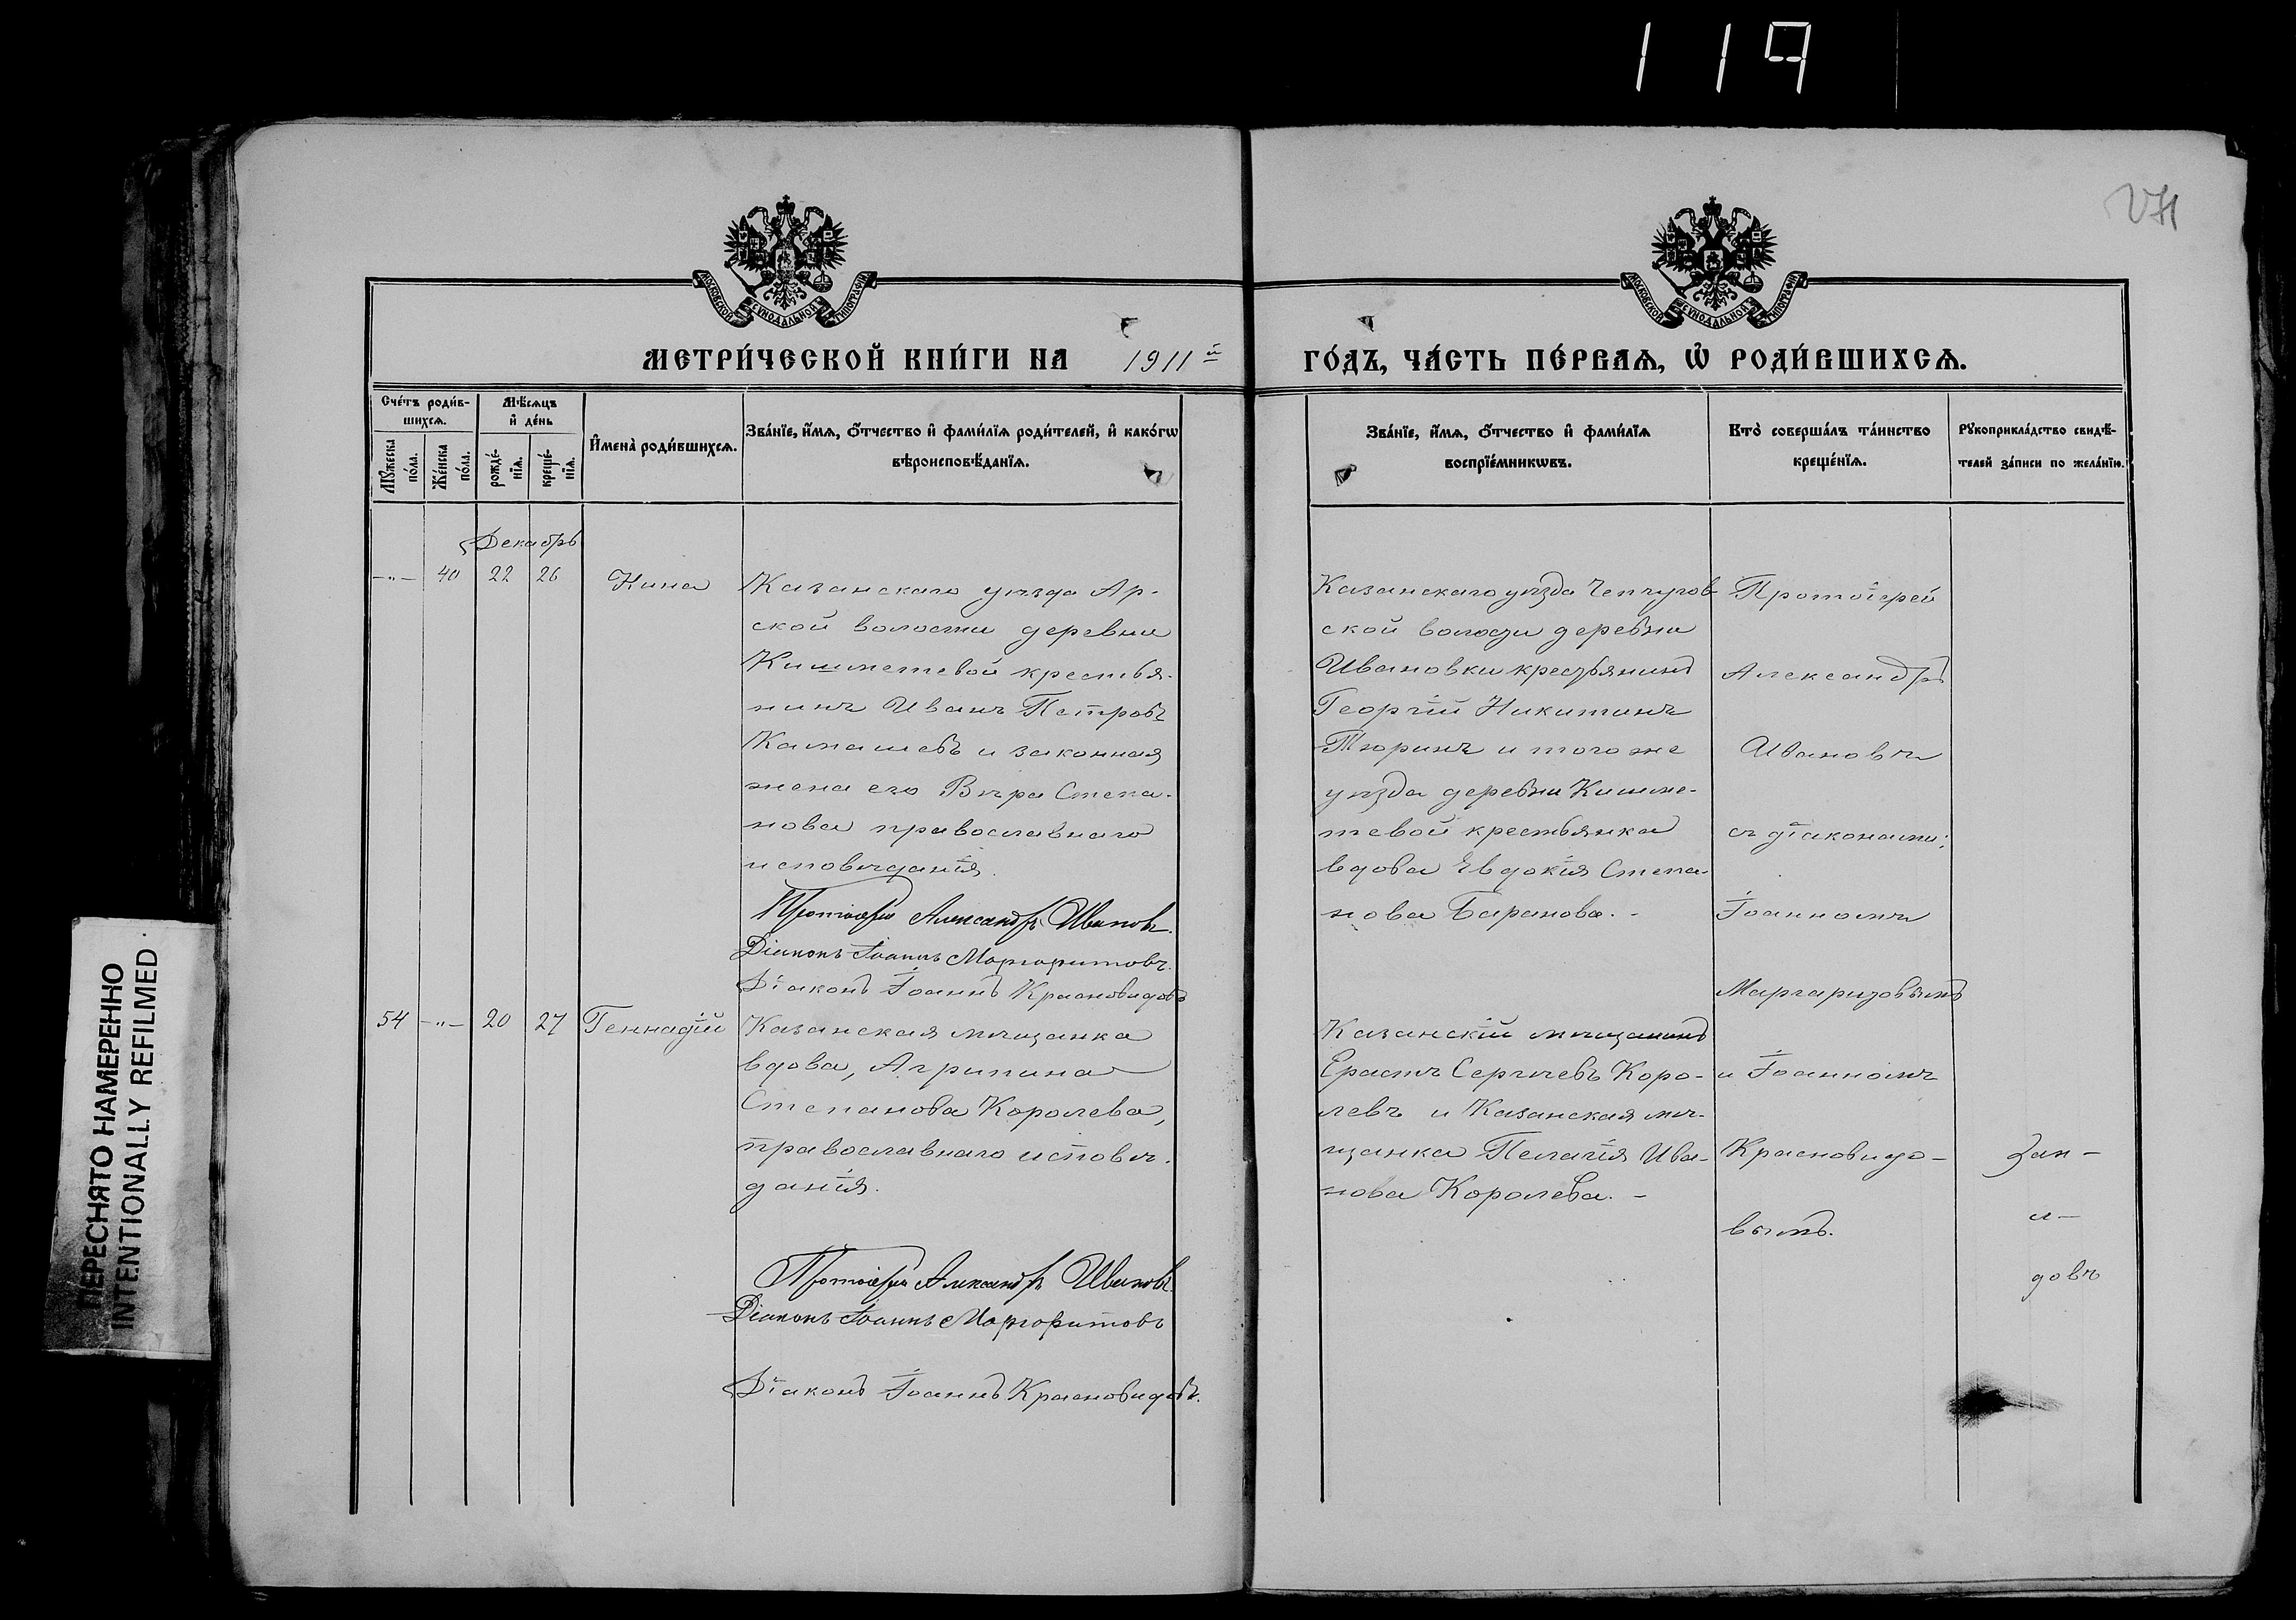 119
МОСКОВСКОЙ СѴНОДАЛЬНОЙ ТИПОГРАФІИ
МОСКОВСКОЙ СѴНОДАЛЬНОЙ ТИПОГРАФІИ
МЕТРИ́ЧЕСКОЙ КНИ́ГИ НА 1911й
ГО́ДЪ, ЧА́СТЬ ПЕ́РВАЯ, Ѡ҆ РОДИ́ВШИХСЯ.
Сче́тъ роди́в-
шихся.
Мѣ́сяцъ
и҆ де́нь
Мꙋжеска
по́ла.
Же́нска
по́ла.
рожде́-
нїя.
креще́-
нїя.
И҆мена̀ роди́вшихся.
Зва́нїе, и҆́мя, ѻ҆́тчество и҆ фами́лїя роди́телей, и҆ како́гѡ
вѣроисповѣ́данїя.
Зва́нїе, и҆́мя, ѻ҆́тчество и҆ фами́лїя
воспрїе́мникѡвъ.
Кто̀ соверша́лъ та́инство
креще́нїя.
Рꙋкоприкла́дство свидѣ́-
телей за́писи по жела́нїю.
Декабрь
-"- 40 22 26 Нина
Казанскаго уѣзда Ар-
ской волости деревни
Кишметевой крестья-
нинъ Иванъ Петровъ
Камашевъ и законная
жена его Вѣра Степа-
нова православнаго
исповѣданія.
Протоіерей Александръ Ивановъ.
Діаконъ Іоаннъ Маргаритовъ.
Діаконъ Іоаннъ Красновидовъ
Казанскаго уѣзда Чепчугов-
ской волости деревни
Ивановки крестьянинъ
Георгій Никитинъ
Тюринъ и того же
уѣзда деревни Кишме-
тевой крестьянка
вдова Евдокія Степа-
нова Баранова. -
Протоіерей
Александръ
Ивановъ
съ діаконами:
Іоанномъ
Маргаритовымъ
и Іоанномъ
Красновидо-
вымъ.
54 -"- 20 27 Геннадій
Казанская мѣщанка
вдова, Агрипина
Степанова Королева,
православнаго исповѣ-
данія.
Протоіерей Александръ Ивановъ.
Діаконъ Іоаннъ Маргаритовъ
Діаконъ Іоаннъ Красновидовъ.
Казанскій мѣщанинъ
Ерастъ Сергѣевъ Коро-
левъ и Казанская мѣ-
щанка Пелагія Ива-
нова Королева. -
довъ
ПЕРЕСНЯТО НАМЕРЕННО
INTENTIONALLY REFILMED